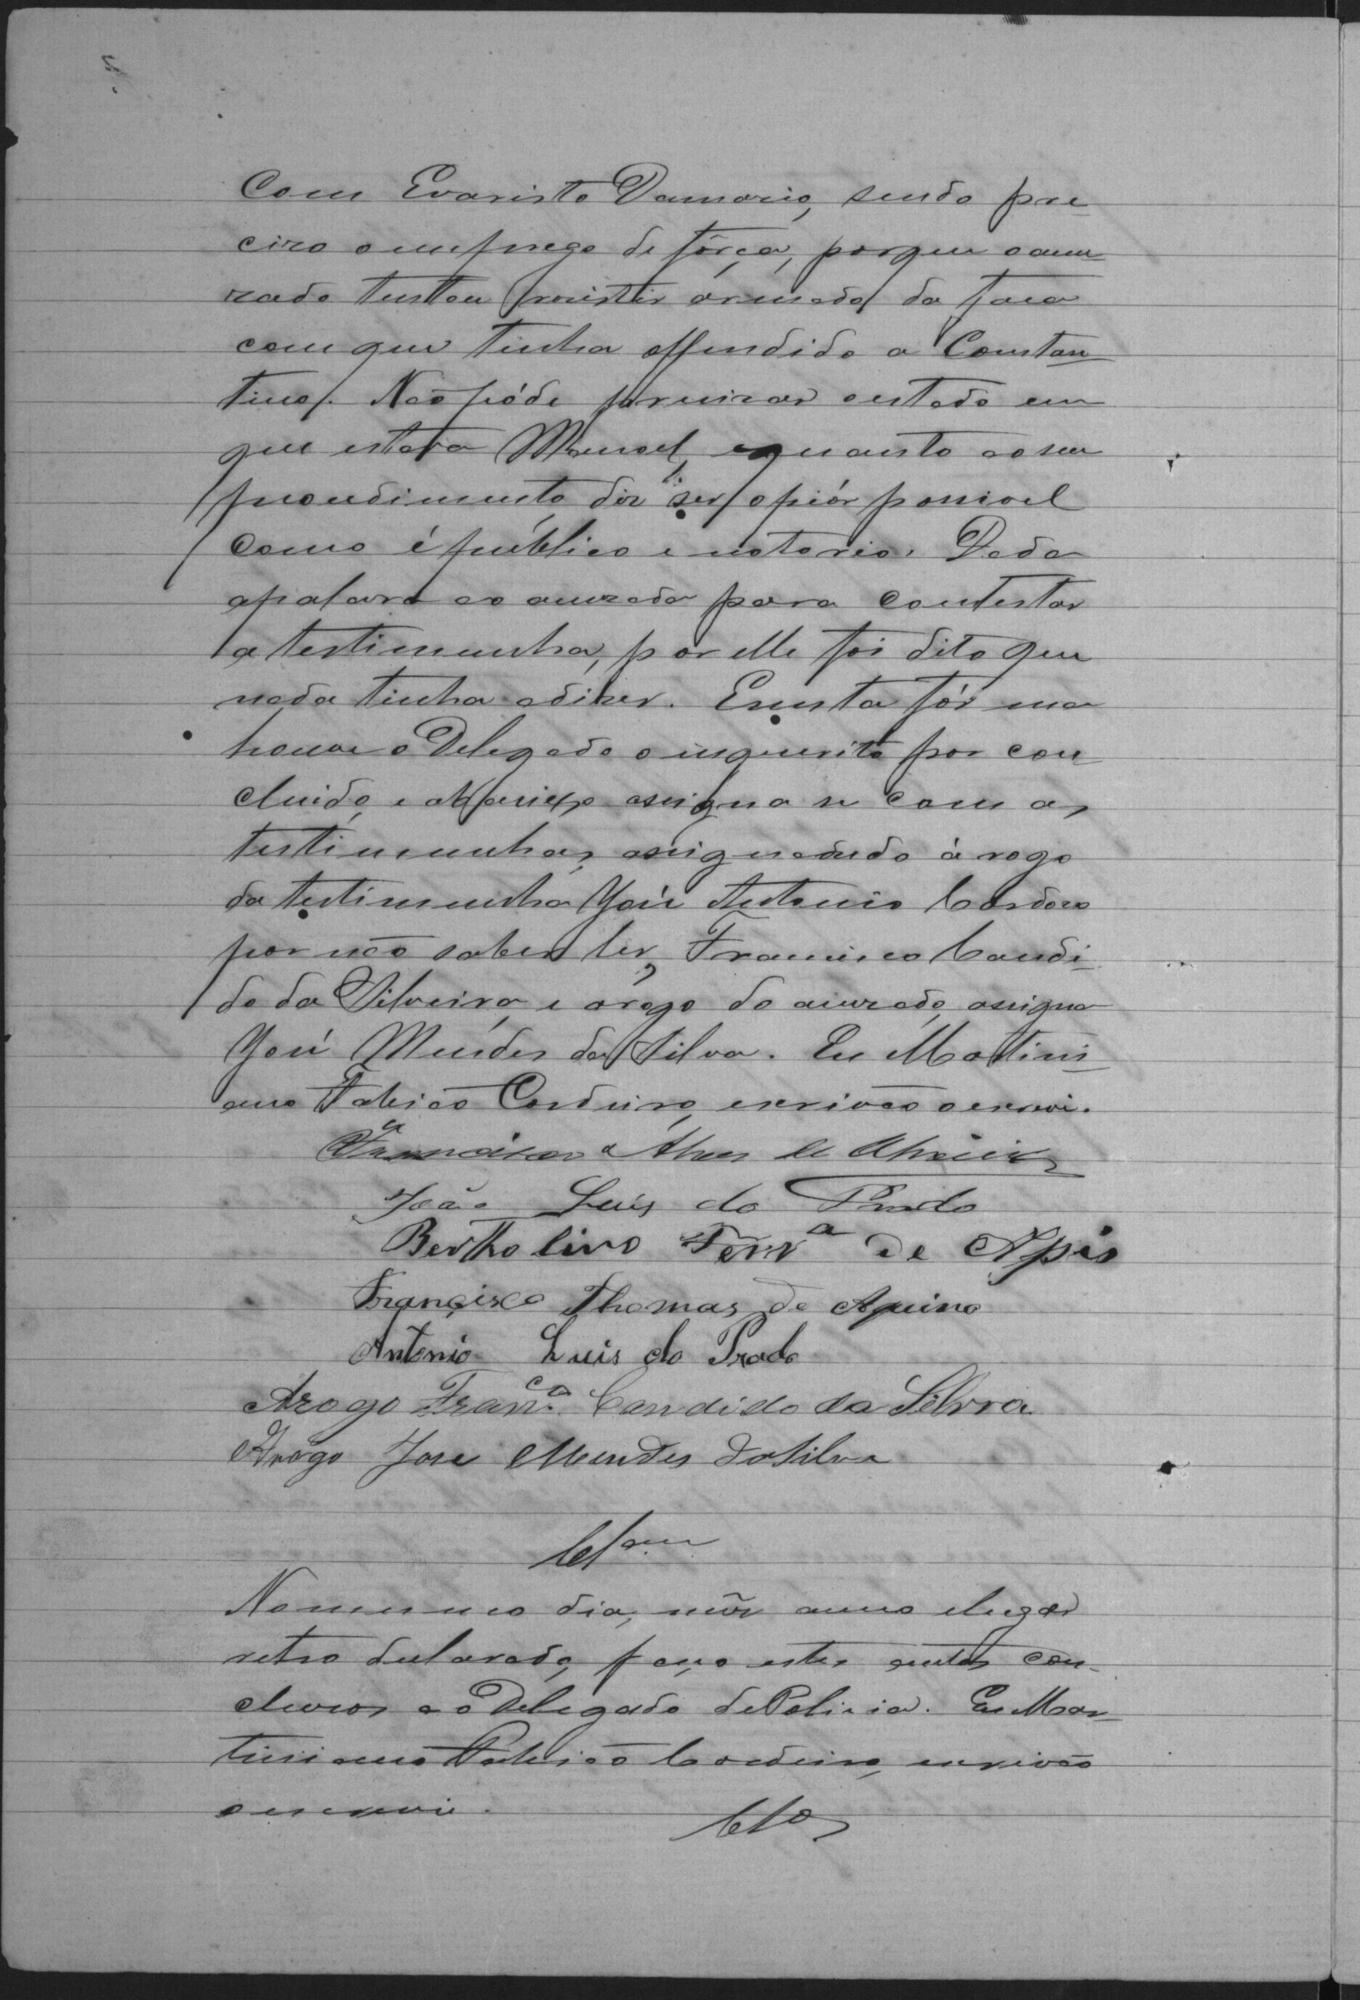 Com Evaristo Damasio, sendo pre
ciso o emprego de fôrça, porque o accu
sado tentou resistir armado da faca
com que tinha offendido a Constan
tino. Não póde precisar o estado em
que estava Manoel, e quanto ao seu
procedimento diz ser o peiór possivel
como é público e notorio. Dada
a palavra ao accusado para contestar
a testimunha, por elle foi dito que
nada tinha a dizer. E nesta fórma
houve o Delegado o inquerito por con
cluido, e abaixo assigna se com as
testimunhas, assignando à rogo
da testimunha José Antonio Cardoso
por não saber ler, Francisco Candi
do da Silveira, e a rogo do accusado, assigna
José Mendes da Silva. Eu Martini
ano Fabião Cordeiro, escrivão o escrevi.
Francisco Alves de
João Luis do Prado
Bertholino Ferrª de Assis
Francisco Thomas de Aquino
Antonio Luis do Prado
Arogo Franco. Candido da Silvra
Arogo Jose Mendes da Silva
Clsam
No mesmo dia, mês anno e lugar
retro declarado, faço estes autos con-
clusos ao Delegado de Policia. Eu Mar
tiniano Fabião Cordeiro, escrivão
o escrevi.
Clos